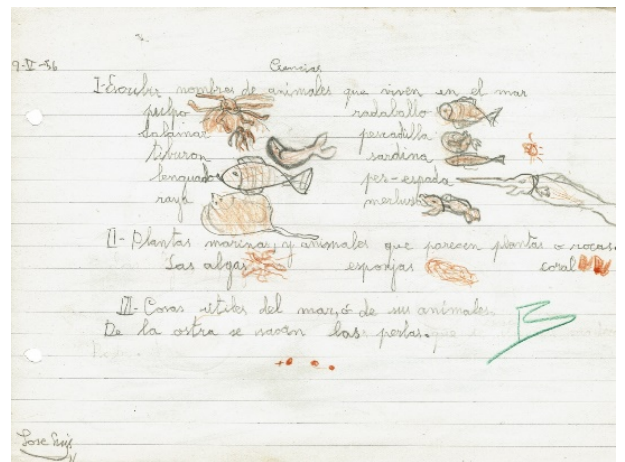 9-V-56
Ciencias
I-Escribir nombres de animales que viven en el mar
pulpo radaballo
calamar pescadilla
tiburon sardina
lenguado pez-espada
raya merluza
II- Plantas marinas y animales que parecen plantas o rocas.
Las algas esponjas coral
III- Cosas utiles del mar, ó de sus animales.
De la ostra se sacan las perlas.
B
Jose Luis